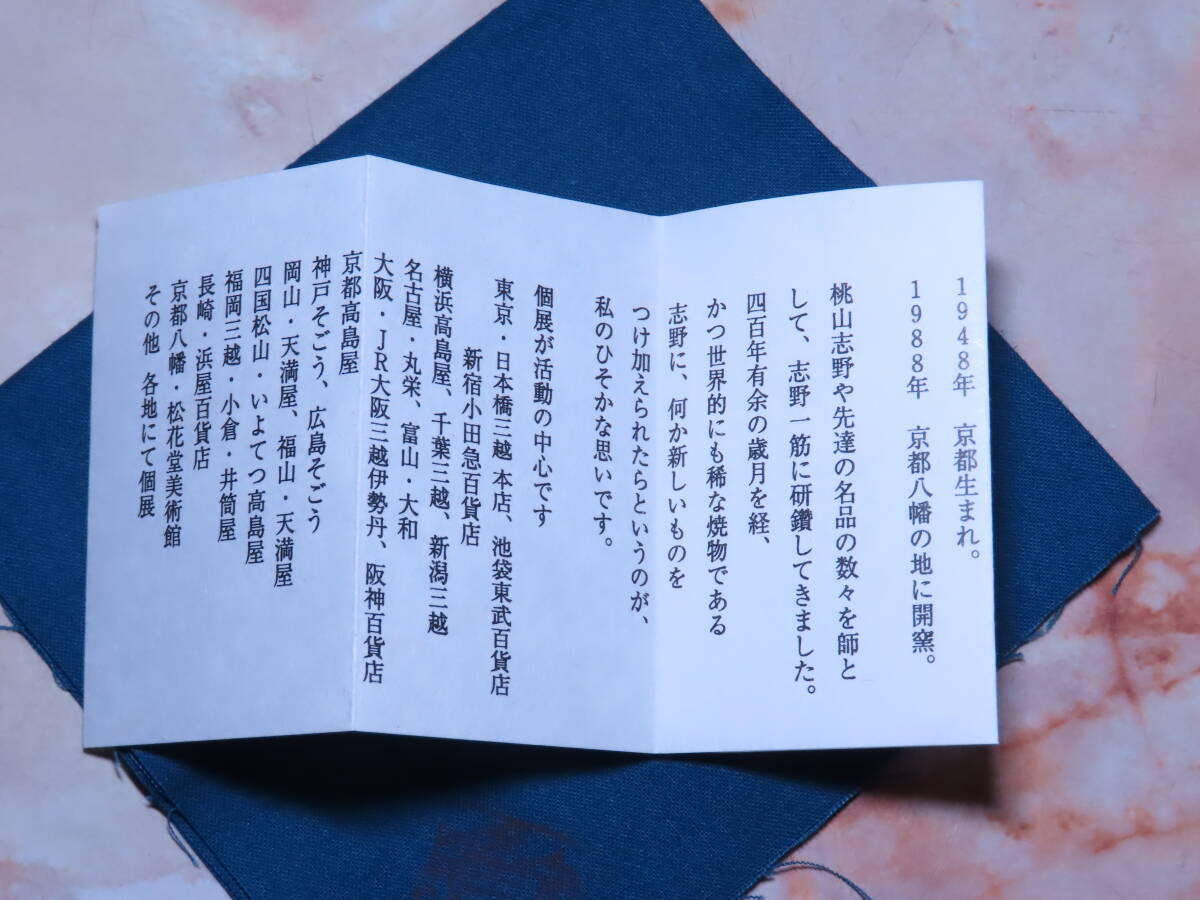 1948年 京都生まれ。
1988年 京都八幡の地に開窯。
桃山志野や先達の名品の数々を師と
して、志野一筋に研鑽してきました。
四百年有余の歳月を経、
かつ世界的にも稀な焼物である
志野に、何か新しいものを
つけ加えられたらというのが、
私のひそかな思いです。
個展が活動の中心です
東京・日本橋三越 本店、池袋東武百貨店
新宿小田急百貨店
横浜高島屋、千葉三越、新潟三越
名古屋・丸栄、富山・大和
大阪・JR大阪三越伊勢丹、阪神百貨店
京都高島屋
神戸そごう、広島そごう
岡山・天満屋、福山・天満屋
四国松山・いよてつ高島屋
福岡三越・小倉・井筒屋
長崎・浜屋百貨店
京都八幡・松花堂美術館
その他 各地にて個展